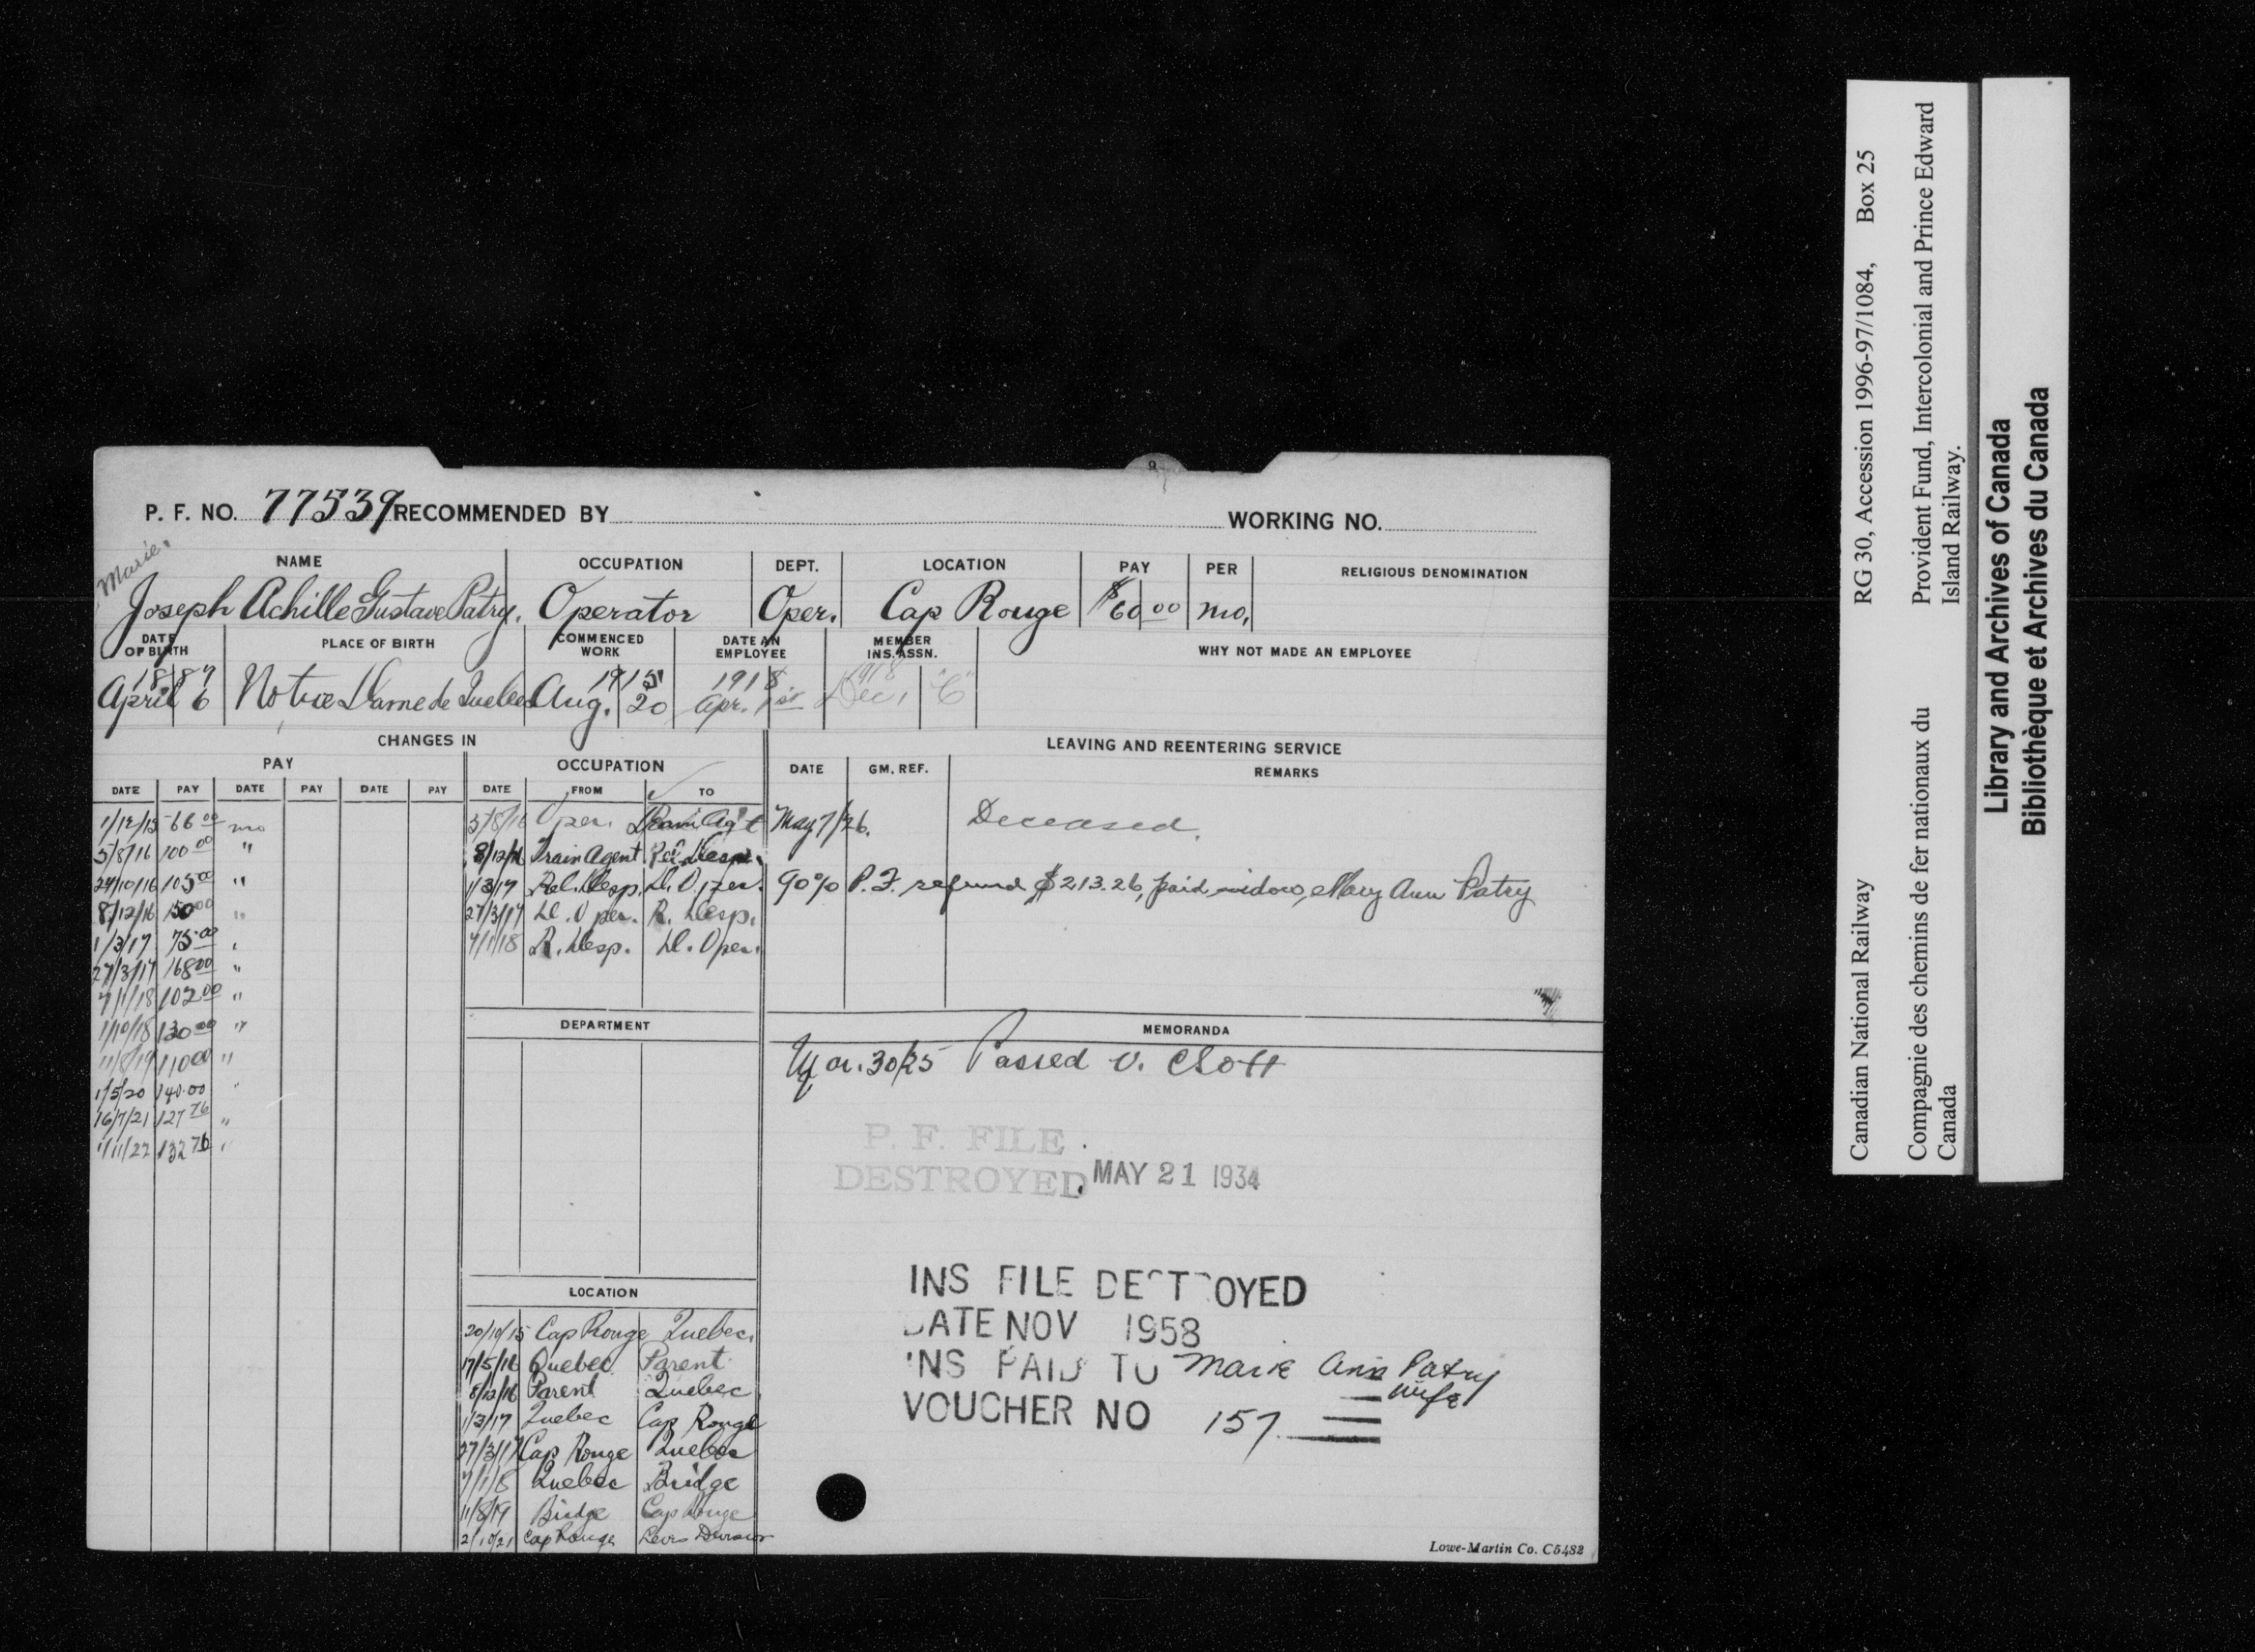 P. F. NO. 77539 RECOMMENDED BY WORKING NO.
Marie,
NAME OCCUPATION DEPT. LOCATION PAY PER RELIGIOUS DENOMINATION
Joseph Achille Gustave Patry. Operator Oper. Cap Rouge $60 00 mo,
DATE OF BIRTH PLACE OF BIRTH COMMENCED WORK DATE AN EMPLOYEE MEMBER INS. ASSN. WHY NOT MADE AN EMPLOYEE
1887 1915 1918 1918
April 6 Notre Dame de Quebec Aug. 20 Apr. 1st Dec, "C"
CHANGES IN LEAVING AND REENTERING SERVICE
PAY OCCUPATION DATE GM. REF. REMARKS
DATE PAY DATE PAY DATE PAY DATE FROM TO
1/12/15 66 00 mo
5/8/16 100 00 "
24/10/16 105 00 "
8/12/16 150 00 "
1/3/17 75 00 "
27/3/17 168 00 "
7/1/18 102 00 "
1/10/18 130 00 "
11/8/19 110 00 "
1/5/20 140.00 "
16/7/21 127 76 "
1/11/22 132 76 "
5/8/16 Oper. Train Ag't
8/12/16 Train Agent Rel. Desp.
1/3/17 Rel. Desp. D. Oper.
27/3/17 D. Oper. R. Desp.
7/1/18 R. Desp. D. Oper.
May 7/26. Deceased.
90% P. F. refund $213.26, paid widow, Mary Ann Patry
DEPARTMENT
LOCATION
20/10/15 Cap Rouge Quebec.
17/5/16 Quebec Parent
8/12/16 Parent Quebec
1/3/17 Quebec Cap Rouge
27/3/17 Cap Rouge Quebec
7/1/8 Quebec Bridge
11/8/19 Bridge Cap Rouge
2/10/21 Cap Rouge Levis Division
MEMORANDA
Mar. 30/25 Passed V. C
P. F. FILE
DESTROYED MAY 21 1934
INS FILE DESTROYED
DATE NOV 1958
INS PAID TO Marie Ann Patry
wife
VOUCHER NO 157
Lowe-Martin Co. C5482
Canadian National Railway RG 30, Accession 1996-97/1084, Box 25
Compagnie des chemins de fer nationaux du Provident Fund, Intercolonial and Prince Edward
Canada Island Railway.
Library and Archives of Canada
Bibliothèque et Archives du Canada